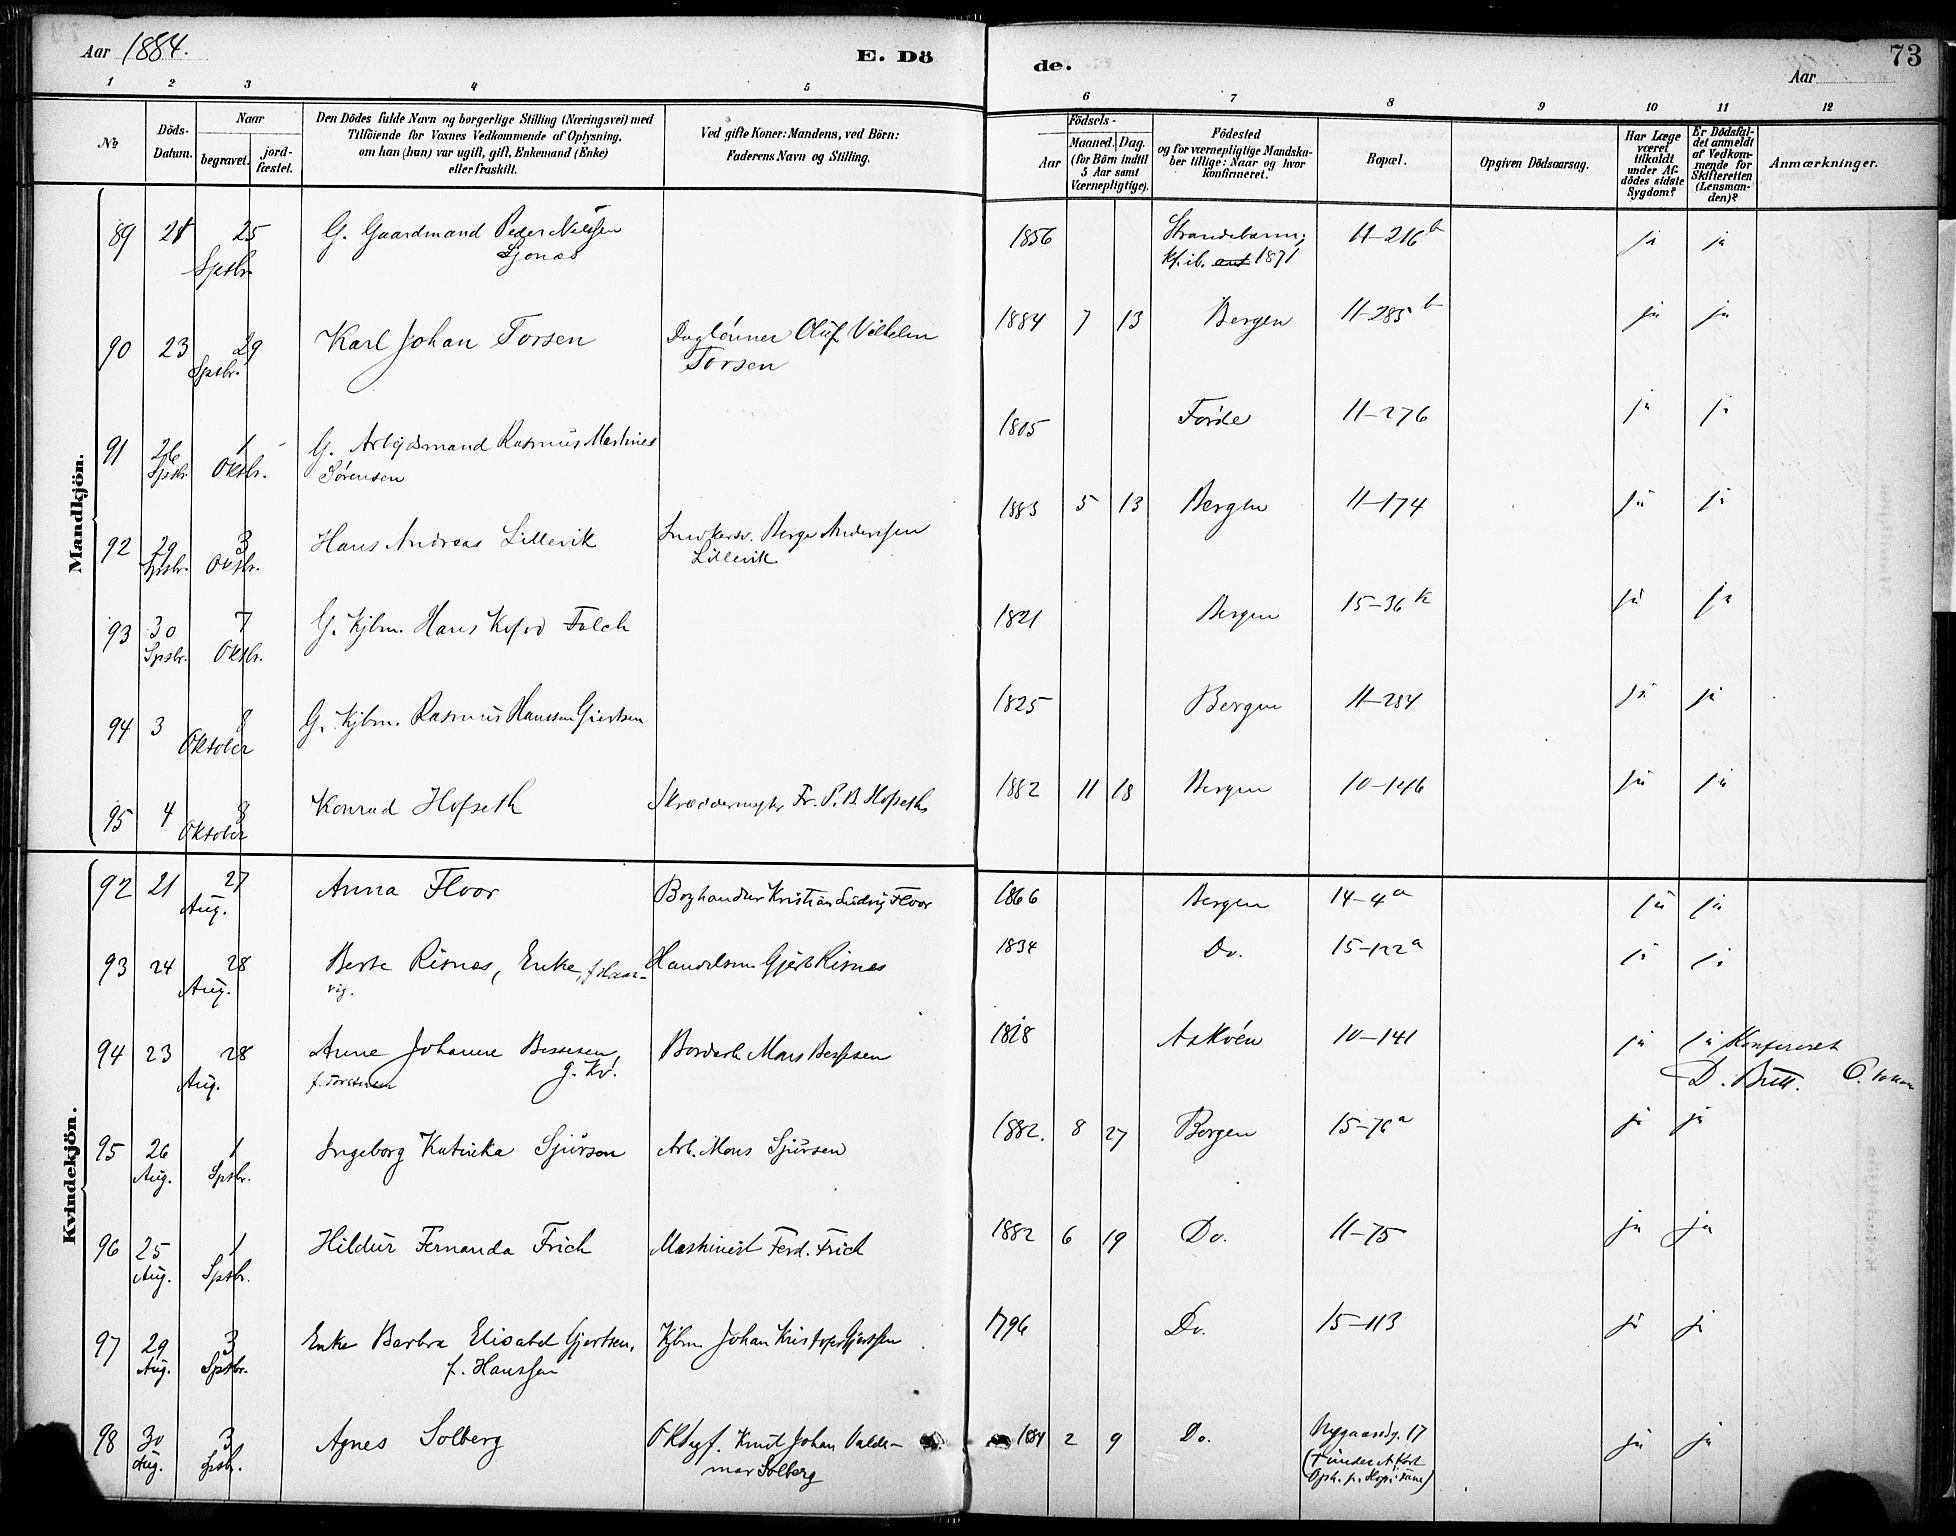 Aar 1884.
E. Dö
de.
Aar
73
1 2 3 4 5 6 7 8 9 10 11 12
№
Döds-
Datum.
Naar
begravet.
jord-
fæstet.
Den Dödes fulde Navn og borgerlige Stilling (Næringsvei) med
Tilföiende for Voxnes Vedkommende af Oplysning,
om han (hun) var ugift, gift, Enkemand (Enke)
eller fraskilt.
Ved gifte Koner: Mandens, ved Börn:
Faderens Navn og Stilling.
Födsels-
Aar
Maaned. Dag.
(for Börn indtil
5 Aar samt
Værnepligtige).
Födested
og for værnepligtige Mandska-
ber tillige: Naar og hvor
konfirmeret.
Bopæl.
Opgiven Dödsaarsag.
Har Læge
været
tilkaldt
under Af-
dödes sidste
Sygdom?
Er Dödsfal-
det anmeldt
af Vedkom-
mende for
Skifteretten
(Lensman-
den)?
Anmærkninger.
Mandkjön.
89 21 25 G. Gaardmand Peder Nilssen 1856 Strandebarm; 11-216 b ja ja
Sptbr. Sjonas Kf. ib. 1871
90 23 29 Karl Johan Torsen Daglönner Oluf Vilhelm 1884 7 13 Bergen 11-285 b ja ja
Sptbr. Torsen
91 26 1 G. Arbejdsmand Rasmus Martines 1805 Förde 11-276 ja ja
Sptbr. Oktbr. Sörensen
92 29 3 Hans Andreas Lillevik Snedkersv. Berge Anderssen 1883 5 13 Bergen 11-174 ja ja
Sptbr. Oktbr. Lillevik
93 30 7 G. Kjbm. Hans Kofod Falch 1821 Bergen 15-36 k ja ja
Sptbr. Oktbr.
94 3 8 G. Kjbm. Rasmus Hanssen Giertsen 1825 Bergen 11-284 ja ja
Oktober
95 4 8 Konrad Hofseth Skræddermester Fr. P. B. Hofseth 1882 11 18 Bergen 10-146 ja ja
Oktober
Kvindekjön.
92 21 27 Anna Floor Boghandler Kristian Ludvig Floor 1866 Bergen 14-4 a ja ja
Aug.
93 24 28 Berte Risnes, Enke, f. Haar- Handelsm. Gjert Risnes 1834 Do. 15-122 a ja ja
Aug. vig.
94 23 28 Anne Johanne Bessesen, Bordarb. Mons Bessesen 1828 Askóen 10-141 ja ja Konfereret
Aug. f. Torstensen g. Kv. D. Butt.
95 26 1 Ingeborg Katinka Sjursen Arb. Mons Sjursen 1882. 8 27 Bergen 15-76 a ja ja
Aug. Sptbr.
96 25 1 Hildur Fernanda Frich Maskinist Ferd. Frich 1882 6 19 Do. 11-75 ja ja
Aug. Sptbr.
97 29 3 Enke Barbra Elisabet Gjertsen, Kjbm. Johan Kristofer Gjertsen 1796 Do. 15-113 ja ja
Aug. Sptbr. f. Hanssen
98 30 3 Agnes Solberg Knut Johan Valde- 1884 2 9 Do. Nygaardsg. 17 ja ja
Aug. Sptbr. mar Solberg